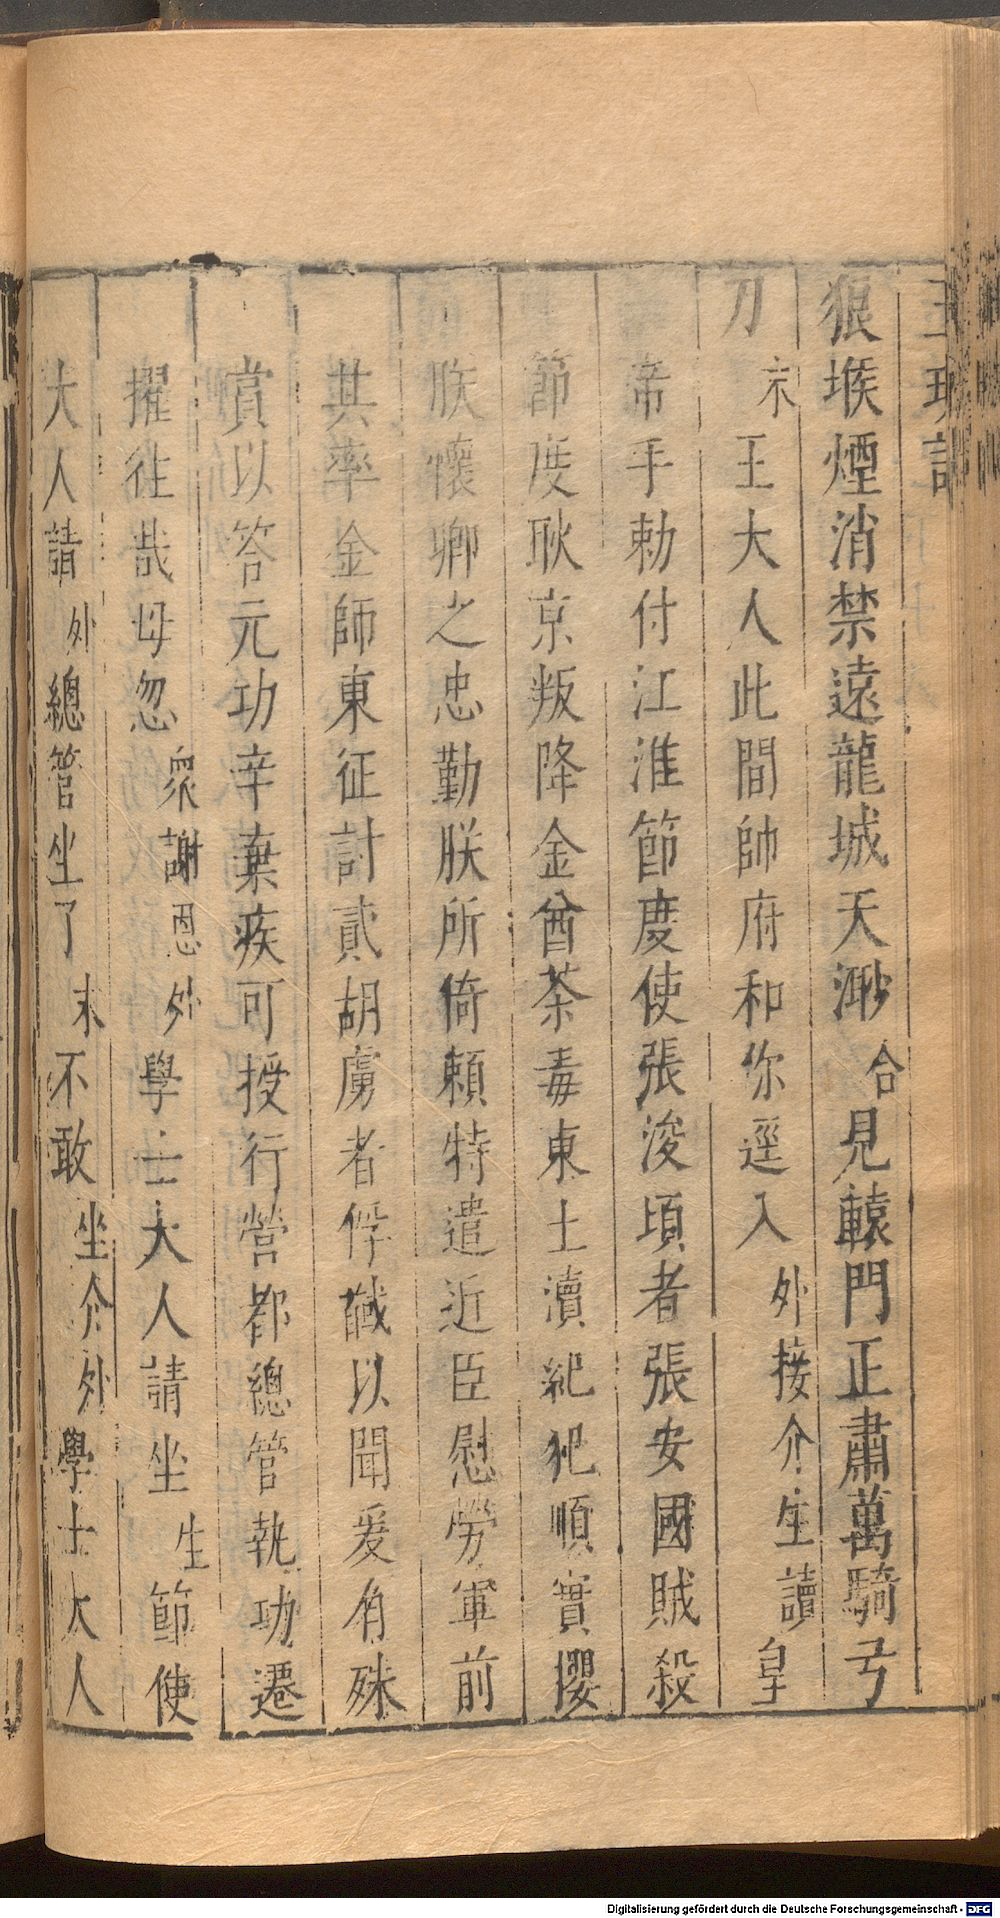 狼堠煙消禁遠龍城天渺合見轅門正肅萬騎弓
刀末王大人此間帥府和你逕入外接介生讀皇
帝手勅付江淮節度使張浚頃者張安國賊殺
節度耿京叛降金酋荼毒東土瀆紀犯順實攖
朕懷卿之忠勤朕所倚賴特遣近臣慰勞軍前
其率金師東征討貳胡虜者俘馘以聞爰有殊
賞以答元功辛棄疾可授行營都總管執功遷
擢徃哉毋忽眾謝恩外學士大人請坐生節使
大人請外總管坐了末不敢坐介外學士大人
Digitalisierung gefördert durch die Deutsche Forschungsgemeinschaft - DFG